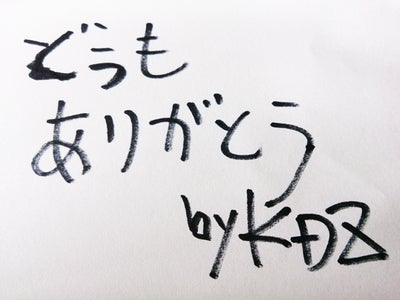 どうも
ありがとう
by KDZ